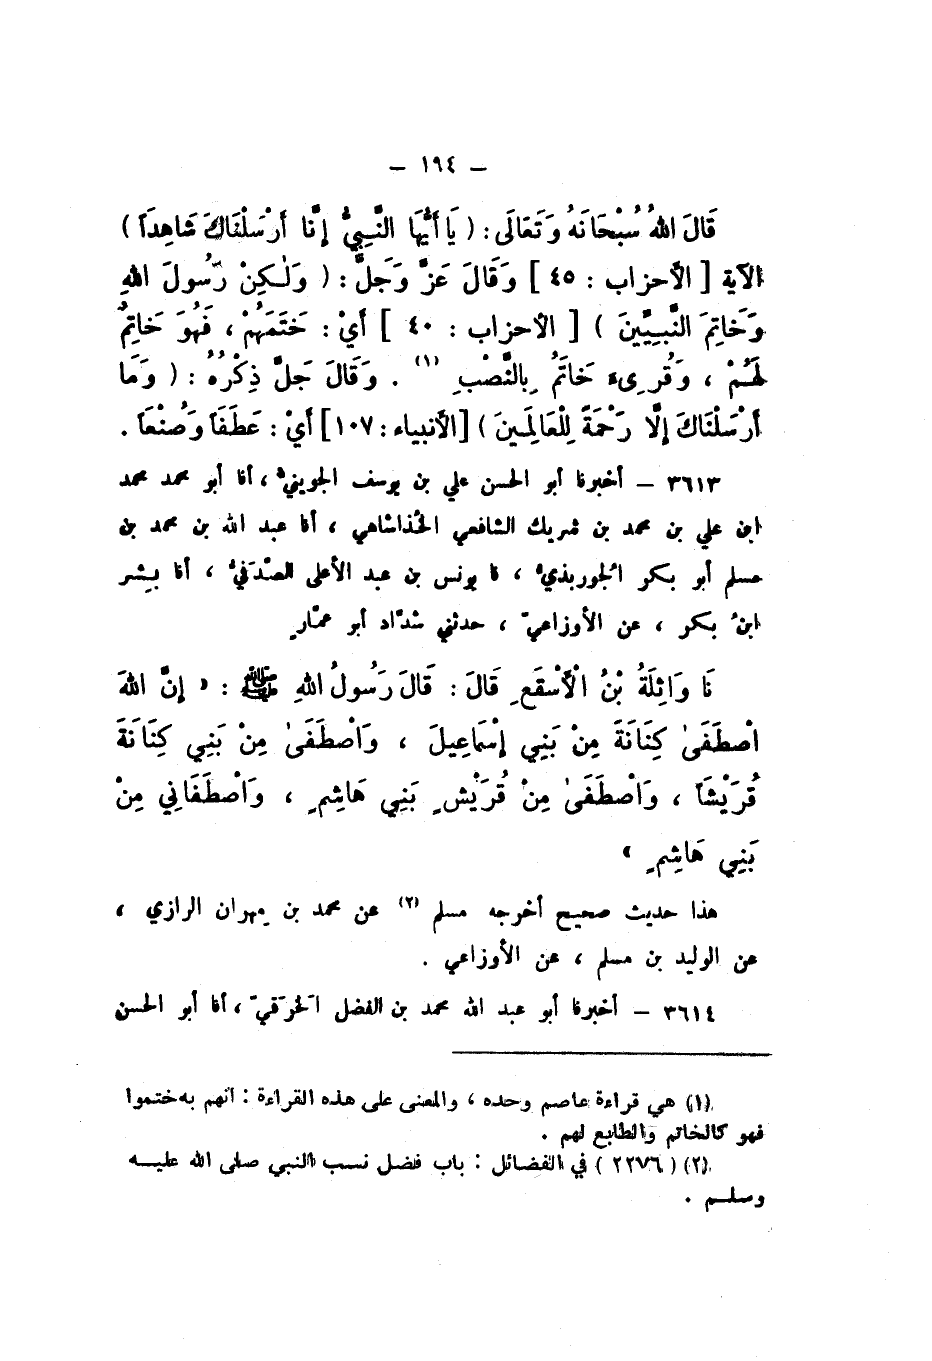 — ١٩٤ —
قَالَ اللهُ سُبْحَانَهُ وَتَعَالَى : ( يَا أَيُّهَا النَّبِيُّ إِنَّا أَرْسَلْنَاكَ شَاهِدَاً )
الآية [ الأحزاب : ٤٥ ] وَقَالَ عَزَّ وَجَلَّ : ( وَلٰكِنْ رَسُولَ اللهِ
وَخَاتِمَ النَّبِيِّينَ ) [ الأحزاب : ٤٠ ] أَيْ : خَتَمَهُمْ ، فَهُوَ خَاتِمٌ
لَهُمْ ، وَقُرِىءَ خَاتَمُ بِالنَّصْبِ (١) . وَقَالَ جَلَّ ذِكْرُهُ : ( وَمَا
أَرْسَلْنَاكَ إِلَّا رَحْمَةً لِلْعَالَمِينَ ) [الأنبياء : ١٠٧] أَيْ : عَطَفَاً وَصُنْعَاً .
٣٦١٣ — أخبرنا أبو الحسن علي بن يوسف الجوينيُّ ، أنا أبو محمد محمد
ابن علي بن محمد بن شريك الشافعي الخُذاشاهي ، أنا عبد الله بن محمد بن
مسلم أبو بكر الجُوربذيُّ ، نا يونس بن عبد الأعلى الصَّدَفيُّ ، أنا بشر
ابنُ بكر ، عن الأوزاعيّ ، حدثني شدّاد أبو عمّار
نَا وَاثِلَةُ بْنُ الْأَسْقَعِ قَالَ : قَالَ رَسُولُ اللهِ ﷺ : « إِنَّ اللهَ
اصْطَفَىٰ كِنَانَةَ مِنْ بَنِي إِسْمَاعِيلَ ، وَاصْطَفَىٰ مِنْ بَنِي كِنَانَةَ
قُرَيْشَاً ، وَاصْطَفَىٰ مِنْ قُرَيْشٍ بَنِي هَاشِمٍ ، وَاصْطَفَانِي مِنْ
بَنِي هَاشِمٍ »
هذا حديث صحيح أخرجه مسلم (٢) عن محمد بن مهران الرازي ،
عن الوليد بن مسلم ، عن الأوزاعي .
٣٦١٤ — أخبرنا أبو عبد الله محمد بن الفضل الخَرَقيّ ، أنا أبو الحسن
(١) هي قراءة عاصم وحده ، والمعنى على هذه القراءة : انهم به ختموا
فهو كالخاتم والطابع لهم .
(٢) ( ٢٢٧٦ ) في الفضائل : باب فضل نسب النبي صلى الله عليه
وسلم .